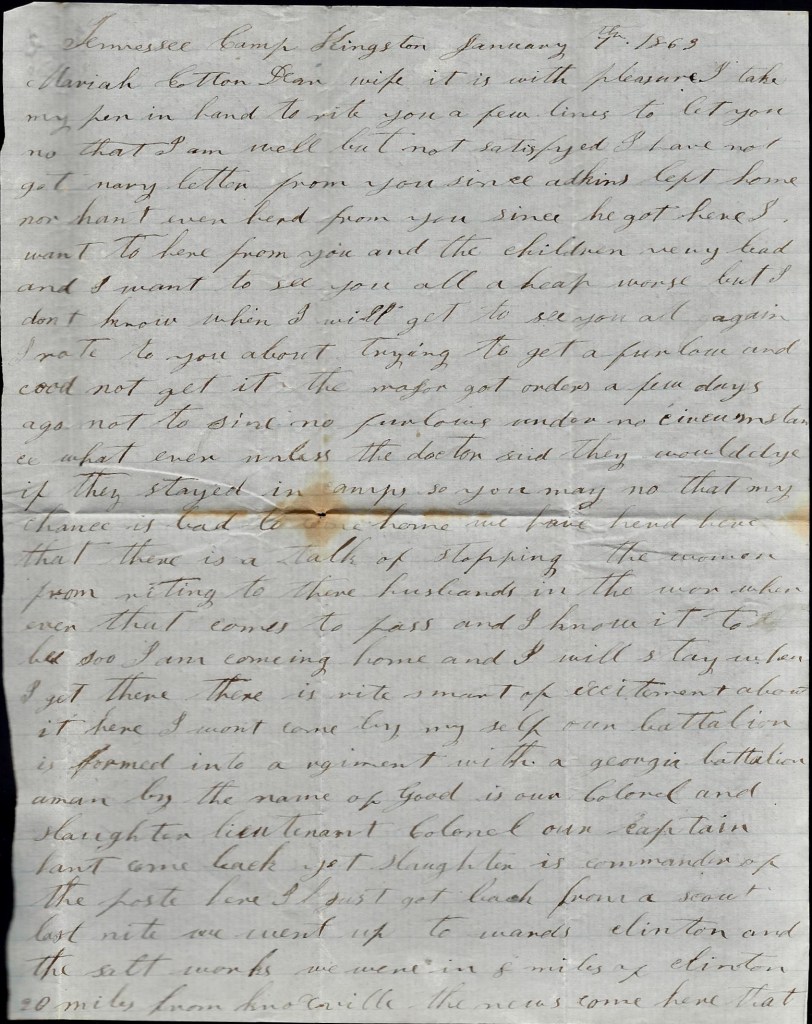 Tennessee Camp Kingston January 7th. 1863
Mariah Cotton Dear wife it is with pleasure I take
my pen in hand to rite you a few lines to let you
no that I am well but not satisfyed I have not
got nary letter from you since adkins left home
nor han't even herd from you since he got here I
want to here from you and the children very bad
and I want to see you all a heap worse but I
don't know when I will get to see you all again
I rote to you about trying to get a furlow and
cood not get it the major got orders a few days
ago not to sine no furlows under no circumstan
ce what ever unless the doctor said they would dye
if they stayed in camps so you may no that my
chance is bad to come home we have herd here
that there is a talk of stopping the women
from riting to there husbands in the war when
ever that comes to pass and I know it to
be soo I am comeing home and I will stay when
I get there there is rite smart of excitement about
it here I wont come by my self our battalion
is formed into a rgiment with a georgia battalion
a man by the name of Good is our Colonel and
Slaughter lieutenant Colonel our captain
hant come back yet Slaughter is commander of
the poste here I just got back from a scout
last nite we went up to wards clinton and
the salt works we were in 8 miles of clinton
20 miles from knoxville the news come here that